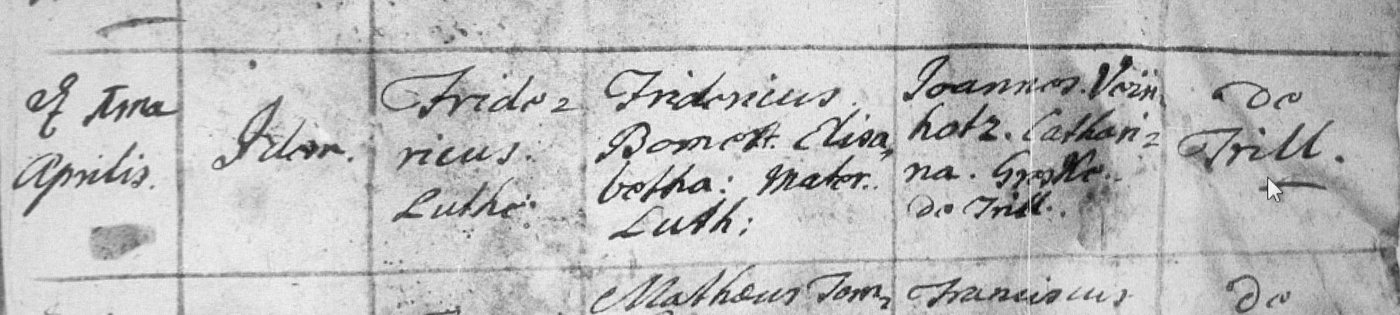 Aprilis.
Idem.
Fride=
ricus.
Luthe:
Fridericus
Elisa,
betha: Mater.
Luth:
Joannes. Vein
hotz. Cathari=
na.
de Trill.
de
Trill.
Matheus
Franciscus
de